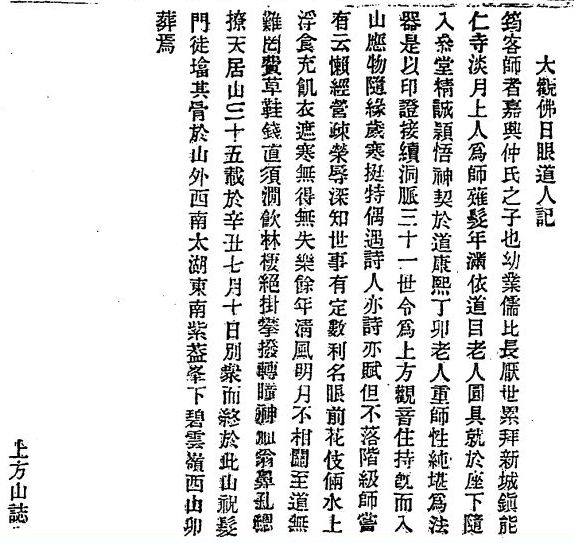 大觀佛日眼道人記
筠客師者嘉興仲氏之子也幼業儒比長厭世累拜新城鎮能
仁寺淡月上人為師薙髮年滿依道目老人圓具就於座下隨
入叅堂精誠穎悟神契於道康熙丁卯老人重師性純堪為法
器是以印證接續洞脈三十一世令為上方觀音住持旣而入
山應物隨緣歲寒挺特偶遇詩人亦詩亦賦但不落階級師嘗
有云懶經營疎榮辱深知世事有定數利名眼前花伎倆水上
浮食充飢衣遮寒無得無失樂餘年清風明月不相關至道無
難因費草鞋錢直須澗飲林棲絕掛攀撥轉瞳神仙翁鼻孔總
撩天居山三十五載於辛丑七月十日別衆而終於此山祝髮
門徒塔其骨於山外西南太湖東南紫蓋峯下碧雲嶺西山卯
葬焉
上方山誌